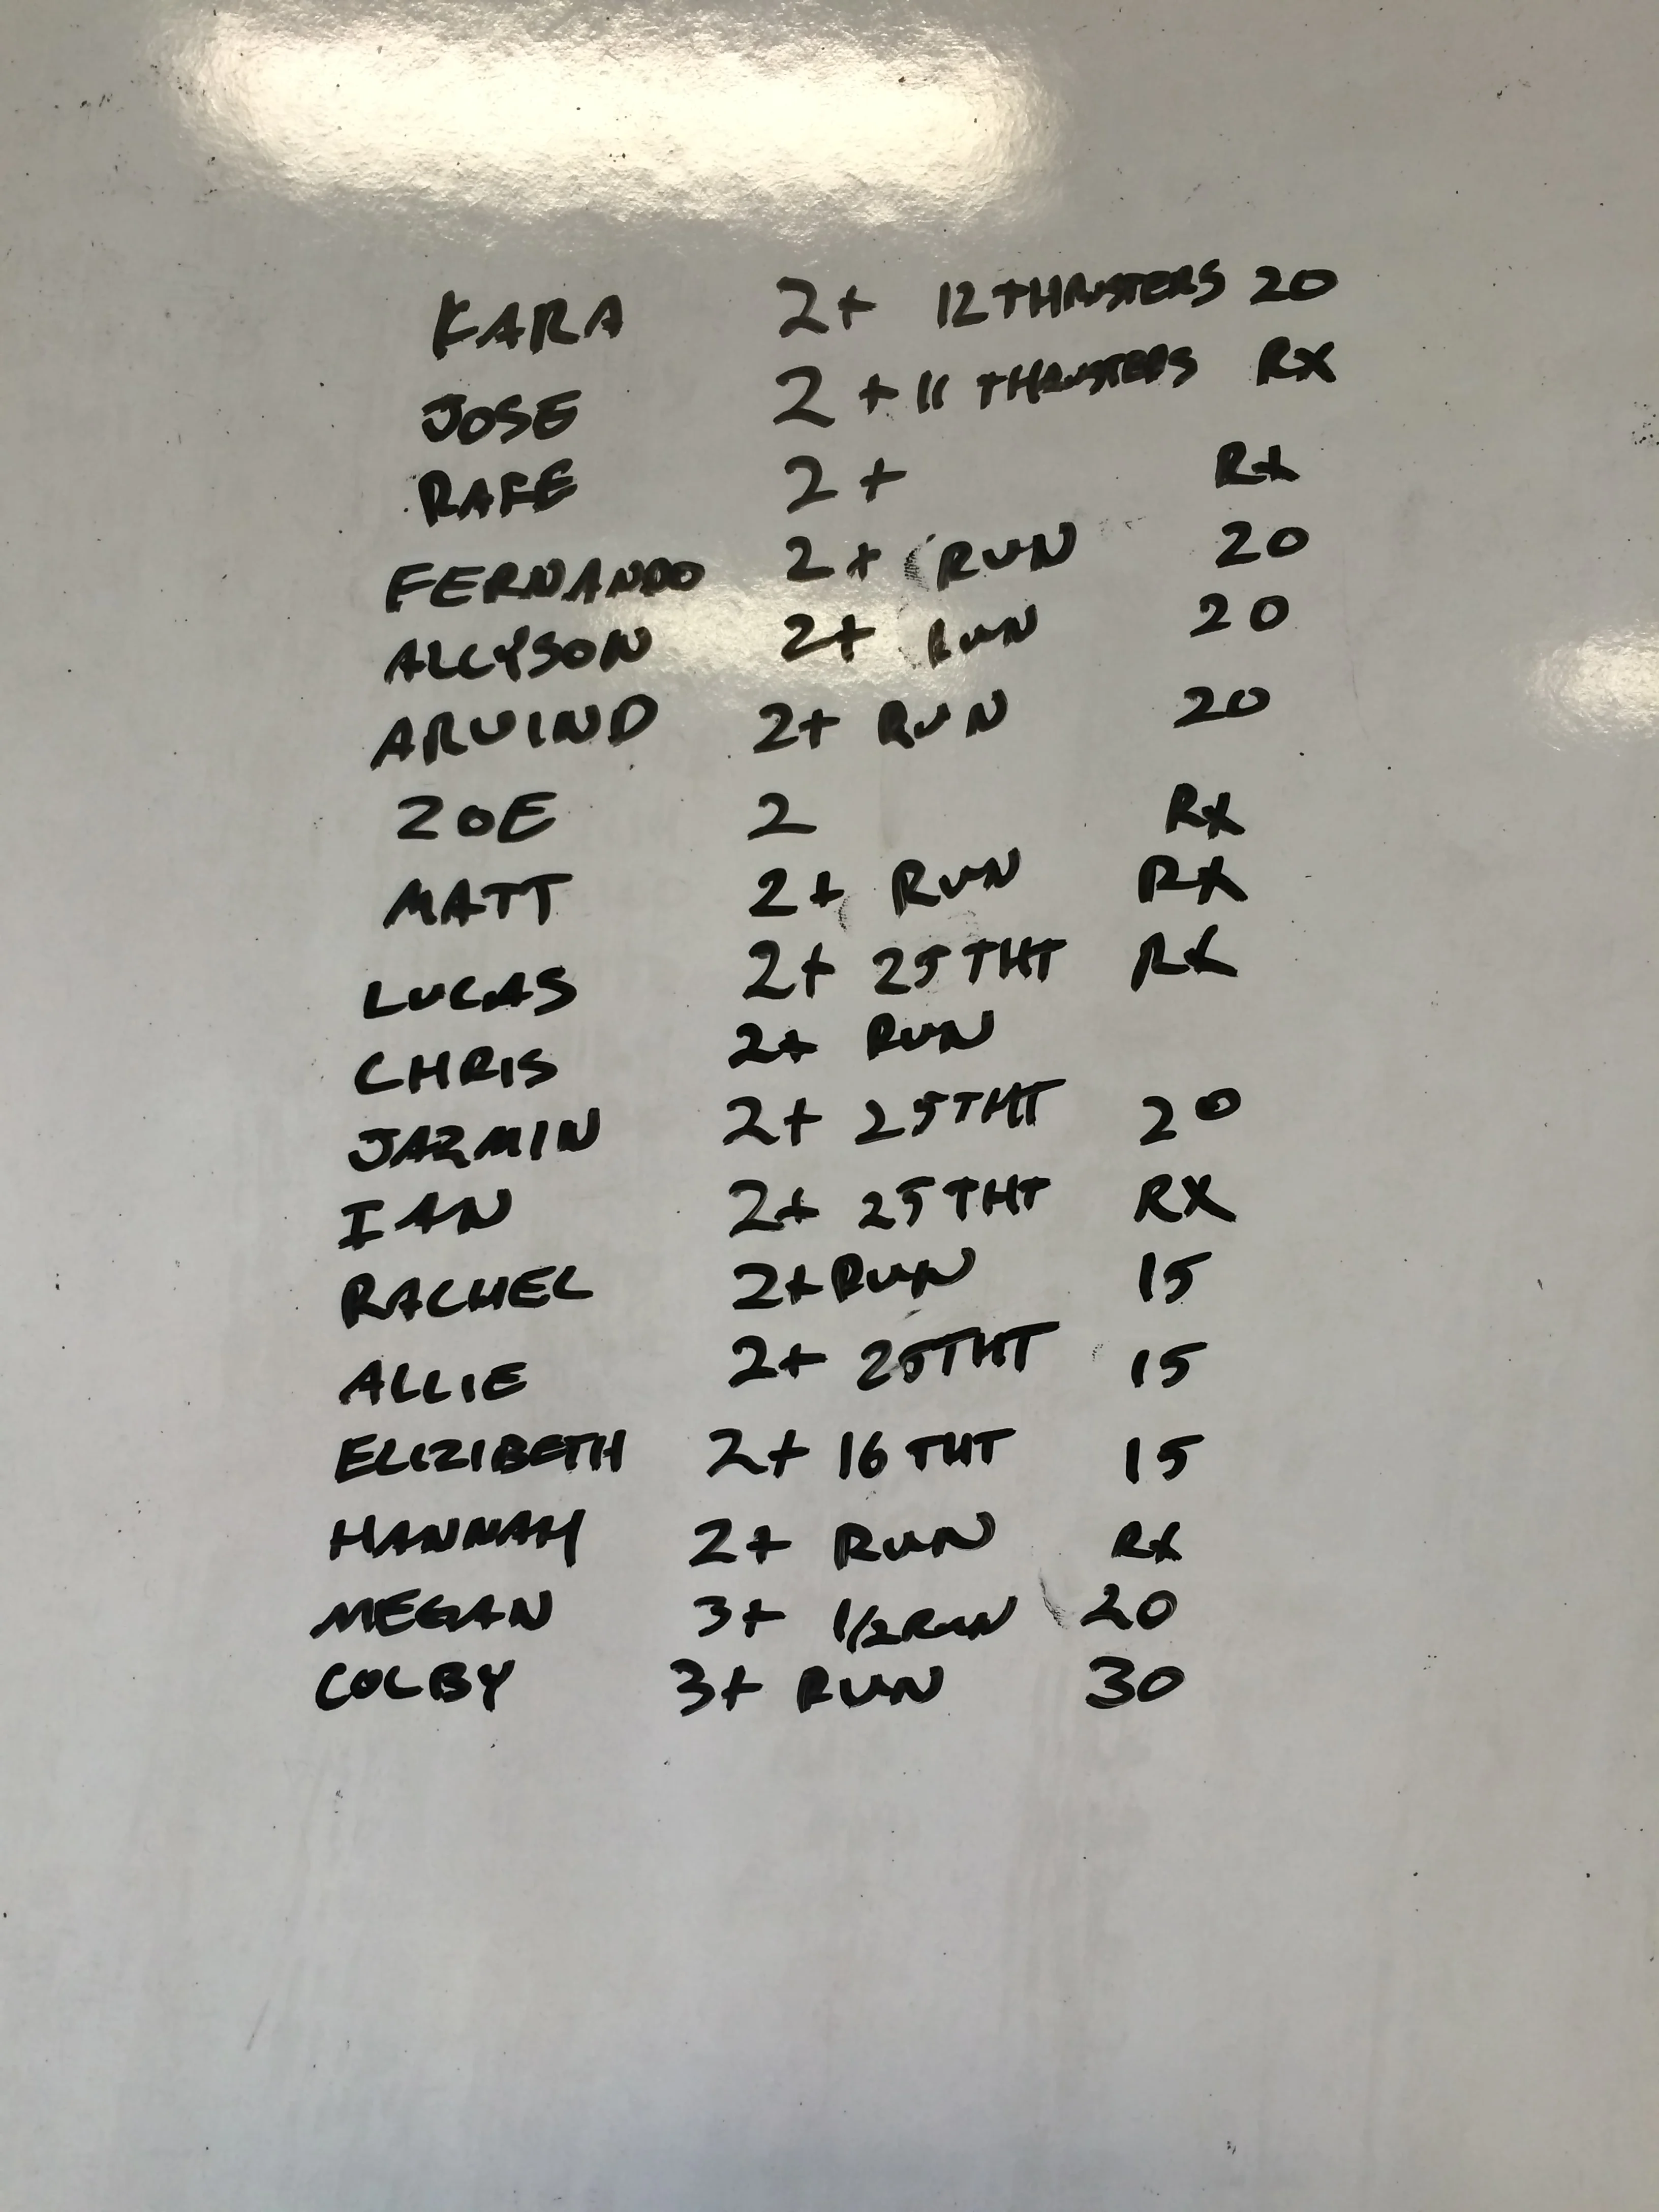 KARA 2+ 12 THRUSTERS 20
JOSE 2 + 11 THRUSTERS RX
RAFE 2 + RX
FERNANDO 2+ RUN 20
ALLYSON 2+ RUN 20
ARVIND 2+ RUN 20
ZOE 2 RX
MATT 2+ RUN RX
LUCAS 2+ 25 THT RX
CHRIS 2+ RUN
JAZMIN 2+ 25 THT 20
IAN 2+ 25 THT RX
RACHEL 2+ RUN 15
ALLIE 2+ 25 THT 15
ELIZIBETH 2+ 16 THT 15
HANNAH 2+ RUN RX
MEGAN 3+ 1/2 RUN 20
COLBY 3+ RUN 30